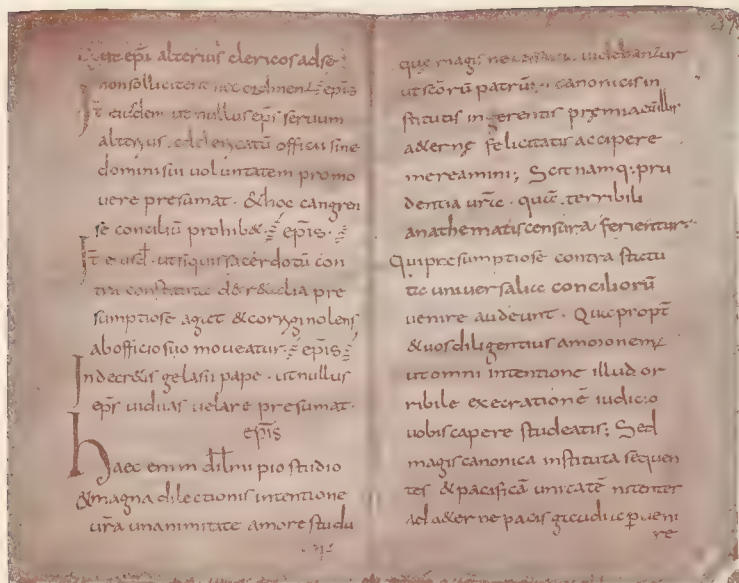 ut epī alterius clericos ad se
non sollicitent nec ordinent epīs
It eiusdem ut nullus eps̄ seruum
alterius ad clericatū officii sine
domini sui uoluntatem promo
uere presumat · & hoc cangren
se conciliū prohib& · epīs ·
It eiusd̄ · ut siquis sacerdotū con
tra constituta decr&alia pre
sumptiose aget & corrigi nolens
ab officio suo moueatur · epīs
In decr&is gelasii pape · ut nullus
eps̄ uiduas uelare presumat ·
epīs
haec enim dil̄mi pio studio
& magna dilectionis intentione
ur̄a unanimitate amore studu
que magis necessaria uidebantur
ut sc̄orū patrū · canonicis in
stitutis ingerentis premia cū illis
a&erne felicitatis accipere
mereamini; Scit namq: pru
dentia ur̄a · quā terribili
anathematis censura ferientur ·
Qui presumptiose contra statu
ta uniuersaliū conciliorū
uenire audeunt · Qua propt̄
& uos diligentius amonem;
ut omni intentione illud or
ribile execrationē iudicio
uobis capere studeatis; Sed
magis canonica instituta sequen
tes & pacificā unitatē nitentes
ad a&erne pacis gaudia p̱ueni
re